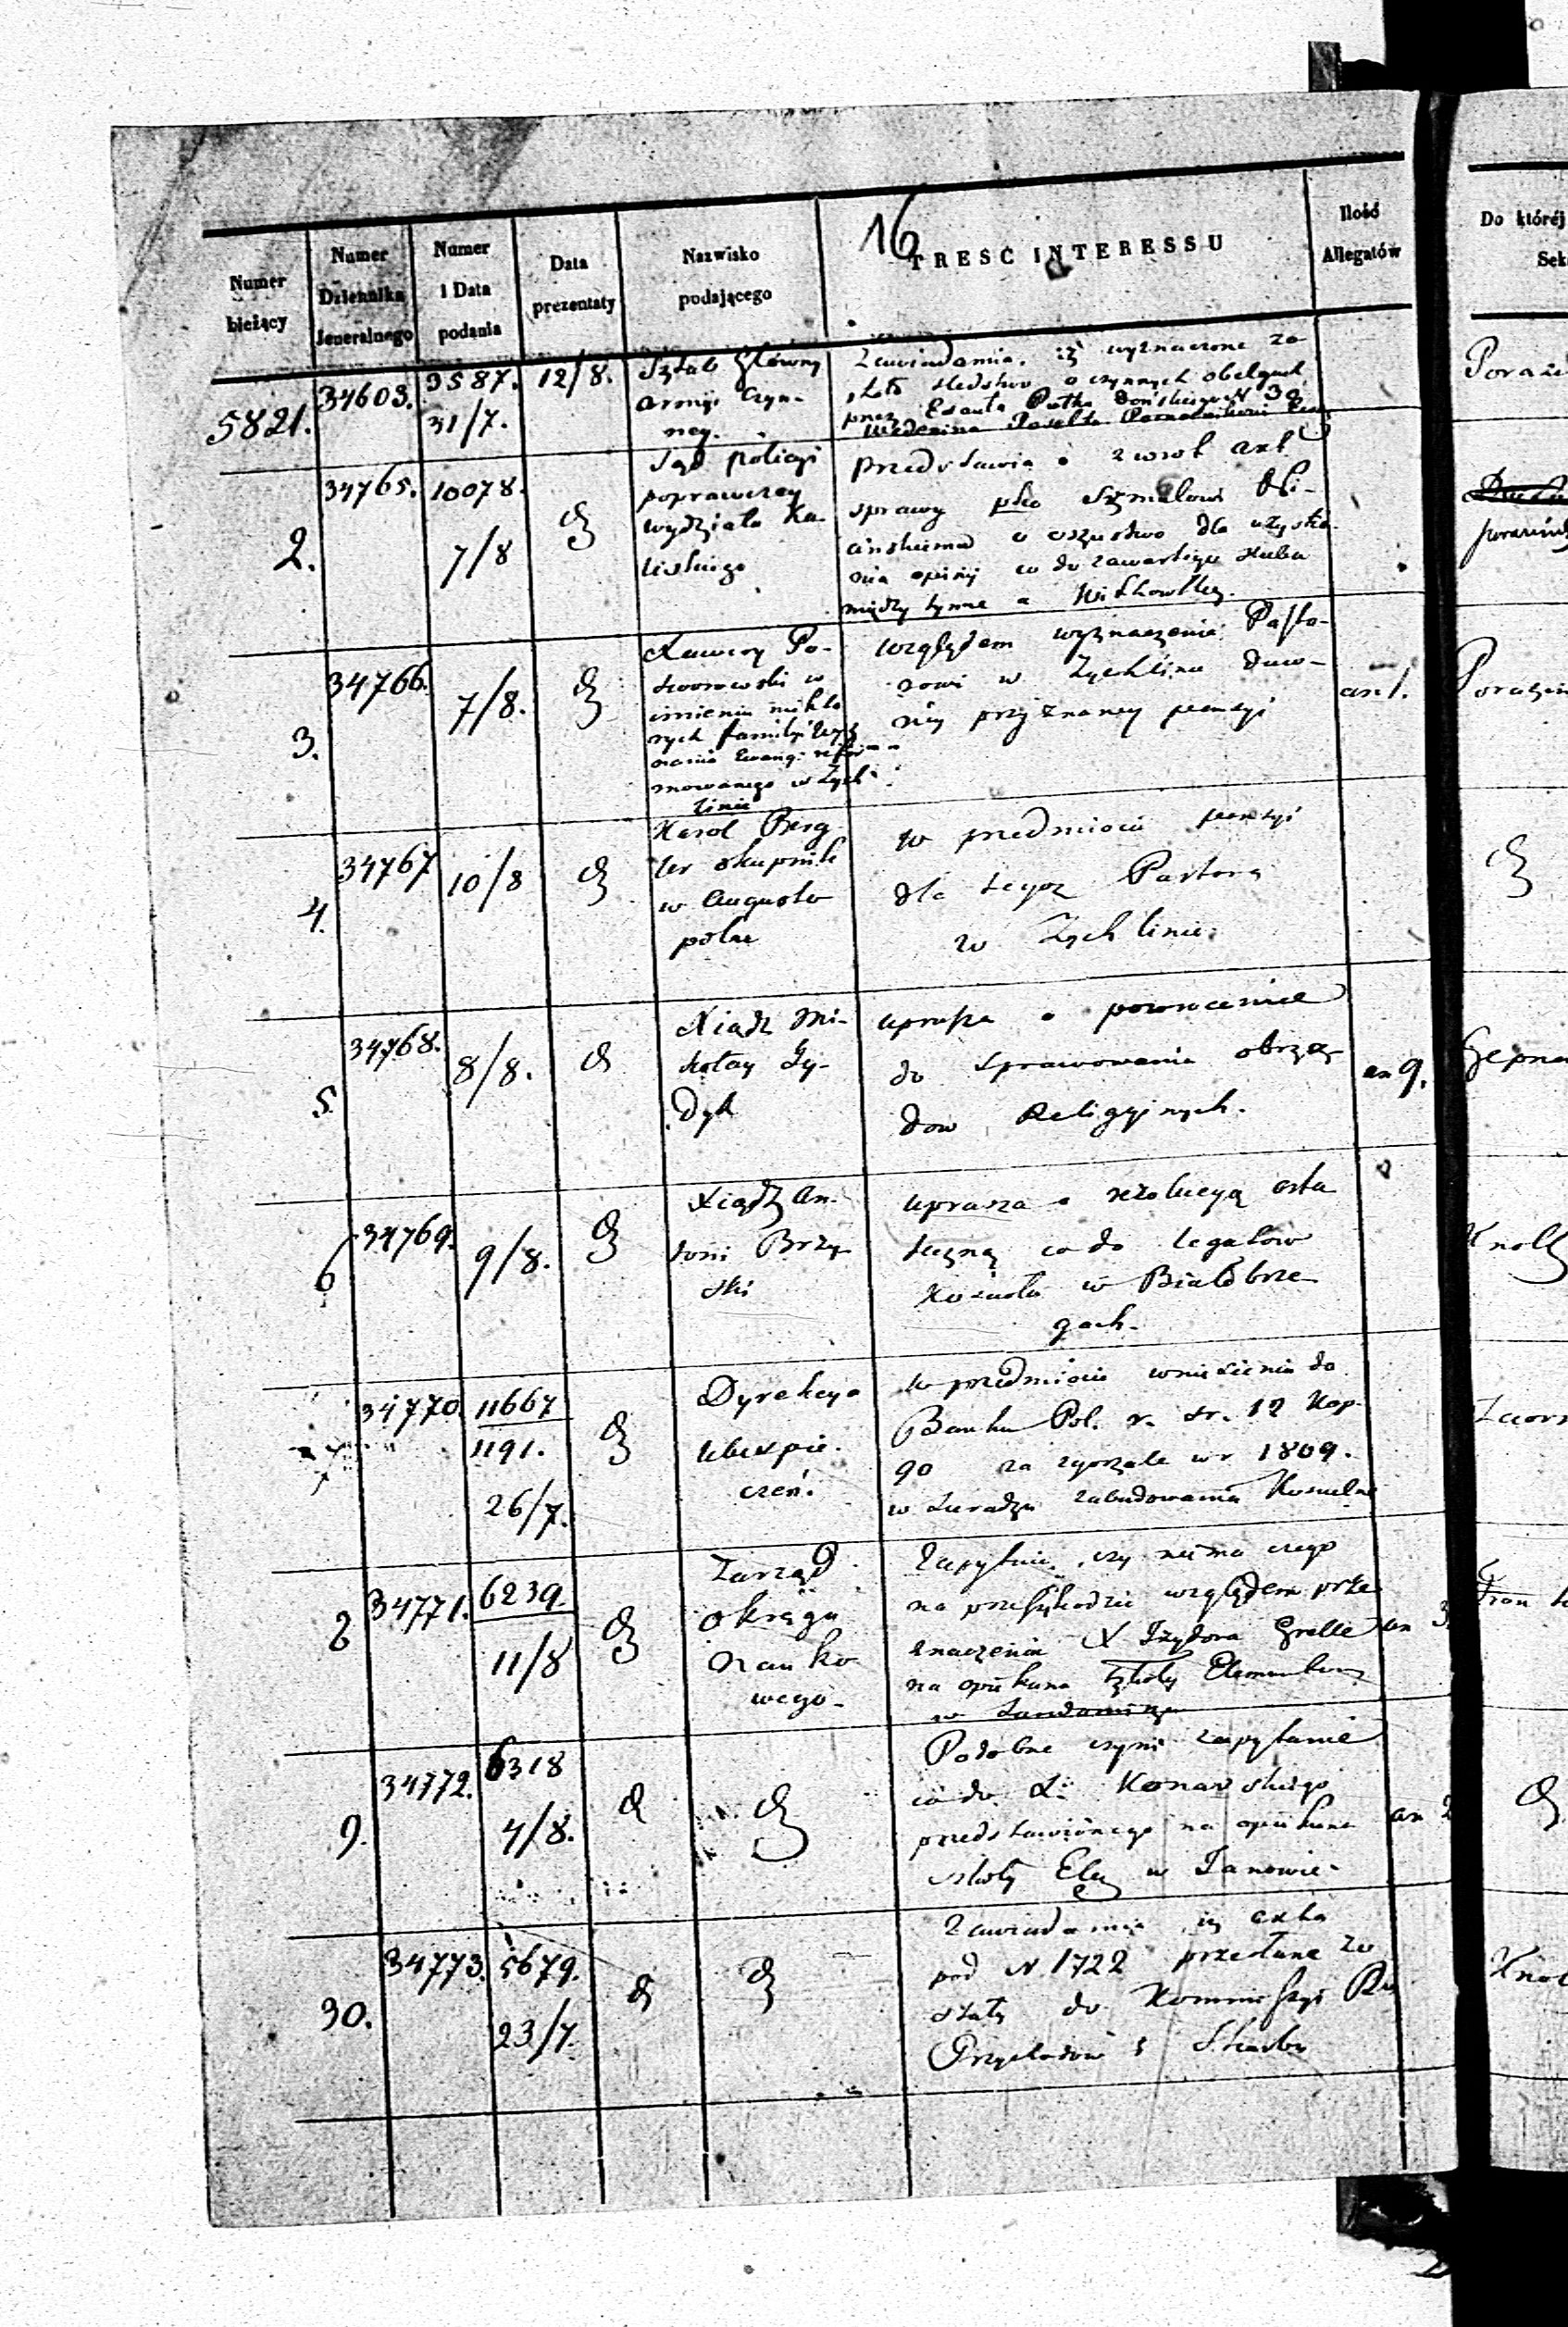 16
Numer
bieżący
Numer
Dziennika
Jeneralnego
Numer
i Data
podania
Data
prezentaty
Nazwisko
podającego
TREŚĆ INTERESSU
Ilość
Allegatów
Do której
Sek
5821.
34603.
3587.
31/7.
12/8.
Sztab Główny
Armyi Czyn-
ney.
Zawiadamia, iż wyznaczone zo-
stało śledztwo o czynnych obelgach
przez Pułku Dońskiego N 39
2.
34765.
10078.
7/8
Sąd policyi
poprawczey
wydziału Ka-
liskiego
przedstawia o zwrot akt
sprawy plko
o oszustwo dla uzyska-
nia opinij co do zawartego slubu
między tymże a
3.
34766.
7/8.
Xawery Po-
w
imieniu niektó
rych familij wyz
nania Ewang: refor
mowanego w Zych
linie
względem wyznaczenia Pasto-
rowi w Zychlinie daw-
niej przyznaney pensyi
an 1.
4.
34767
10/8
Karol Berg
ter okupnik
w Augusto
polu
w przedmiocie pensyi
dla tegoż Pastora
w Zychlinie.
5.
34768.
8/8.
Xiądz Mi-
kołay Gy-
dyk
uprasza o powrócenie
do sprawowania obrzę-
dow Religyjnych.
an 9.
6
34769.
9/8.
Xiądz An-
toni Brzy
ski
uprasza o rezolucyą osta
teczną co do legatów
Kościoła w Białobrze-
gach.
Knoll
34770
11667
1191.
26/7.
Dyrekcya
Ubezpie-
czeń.
w przedmiocie wniesienia do
Banku Pol. r. sr. 12 Kop.
90 za zgorzałe w r 1809.
w zabudowania Kościelne
8
34771.
6239.
11/8
Zarząd
Okręgu
Nauko
wego-
Zapytuie, czy niema czego
na przeszkodzie względem prze
znaczenia X Izydora Grelle
na opiekuna Szkoły Elementar
w Sandomierzu
an 3.
9.
34772.
6318
4/8.
Podobne czyni zapytanie
co do X. Konarskiego
przedstawionego na opiekuna
szkoły Ele w Janowie-
an 2
30.
34773.
5679.
23/7.
Zawiadamia iż akta
pod N. 1722 przesłane zo
stały do Kommissyi Rz
Przychodów i Skarbu